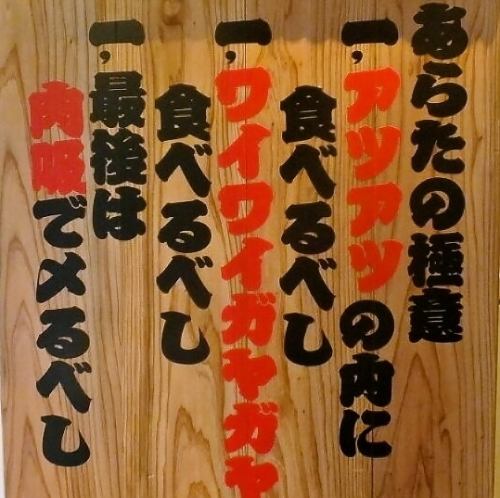 あらたの極意
一、アツアツの内に
食べるべし
一、ワイワイガヤガヤ
食べるべし
一、最後は
肉吸で〆るべし